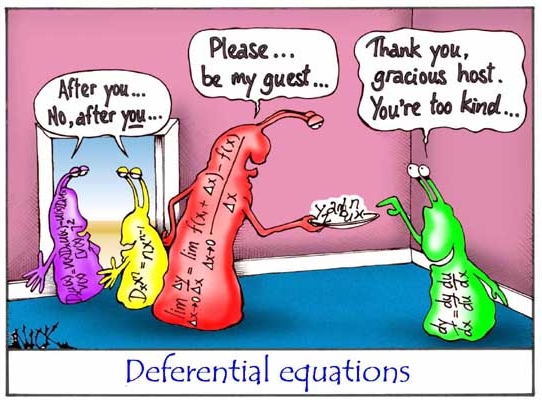 After you...
No, after you...
Please...
be my guest...
Thank you,
gracious host.
You're too kind...
Dₓxⁿ = nxⁿ⁻¹
lim Δx→0 Δy/Δx = lim Δx→0 f(x₁ + Δx) − f(x)/Δx
dy/dx = dy/du du/dx
NICK
Deferential equations